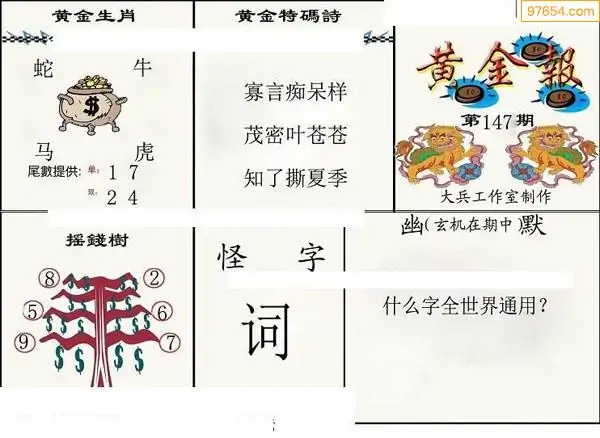 97654.com
黄金生肖
蛇 牛
$
马 虎
尾數提供: 单: 1 7
双: 2 4
黄金特碼詩
寡言痴呆样
茂密叶苍苍
知了撕夏季
黄金報
第147期
大兵工作室制作
摇錢樹
⑧ ②
⑤ ⑥
⑨ ⑦
$ $ $ $ $ $ $ $ $ $
怪 字
词
幽(玄机在期中)默
什么字全世界通用?